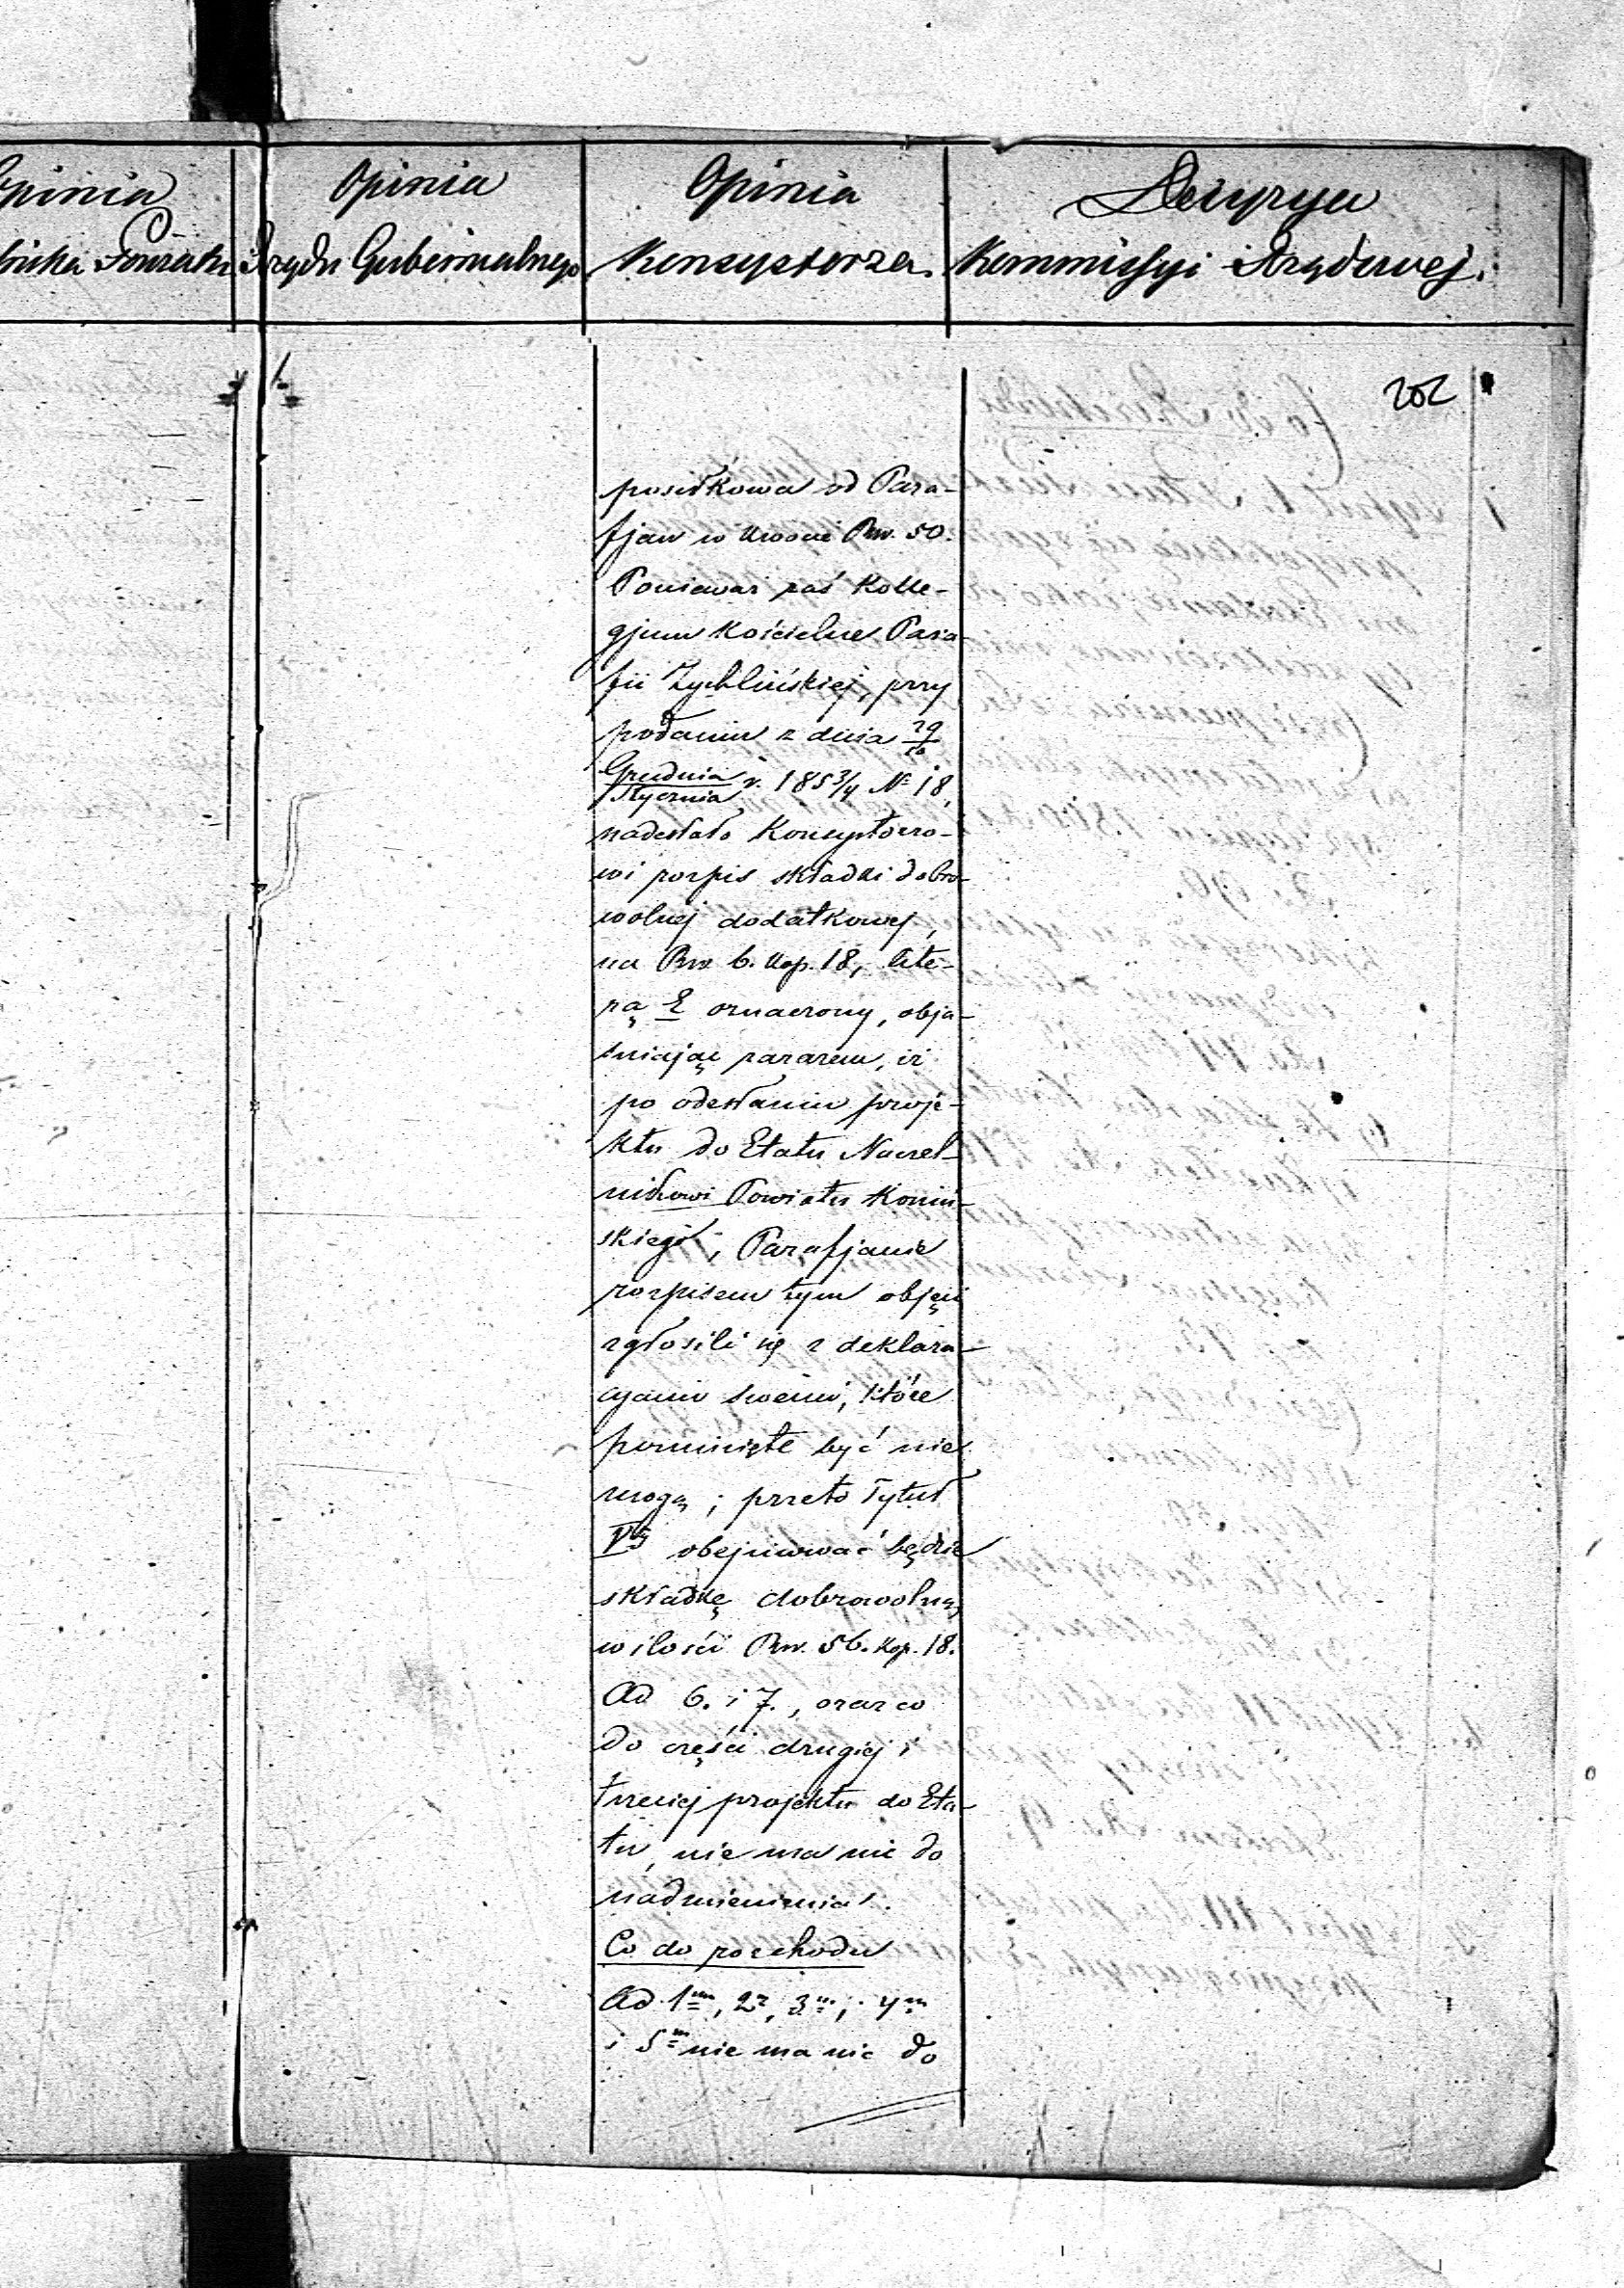 Opinia
Opinia
Opinia
Decyzya
Rządu Gubernialnego
Konsystorza.
Kommissyi Rządowej.
202
posiłkowa od Para-
fjan w kwocie Rsr. 50.
Ponieważ zaś Kolle-
gjum Kościelne Para-
fii Żychlińskiej, przy
podaniu z dnia 29/10
Grudnia/Stycznia r. 1853/4 № 18,
nadesłało Konsystorzo-
wi rozpis składki dobro-
wolnej dodatkowej,
na Rsr. 6. kop. 18, lite-
rą E oznaczony, obja-
śniając zarazem, iż
po odesłaniu proje-
ktu do Etatu Naczel-
nikowi Powiatu Koniń-
skiego, Parafjanie
rozpisem tym objęci
zgłosili się z deklara-
cyami swemi, które
pominięte być nie
mogą; przeto Tytuł
Vty obejmować będzie
składkę dobrowolną
w ilości Rsr. 56. kop. 18.
Ad 6. i 7., oraz co
do części drugiej i
trzeciej projektu do Eta-
tu, nie ma nic do
nadmienienia.
Co do rozchodu
Ad 1m, 2, 3m, 4m
i 5m nie ma nic do